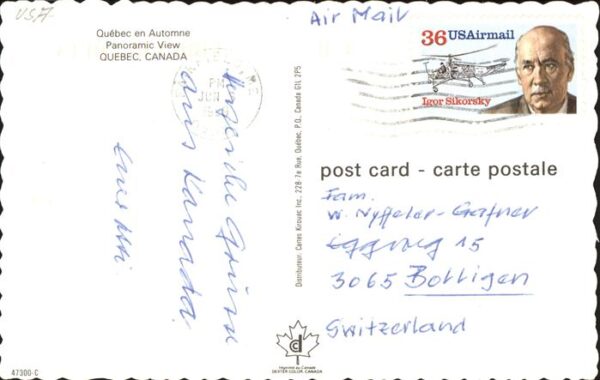 USA
Québec en Automne
Panoramic View
QUEBEC, CANADA
PM
JUN
Air Mail
36 USAirmail
Igor Sikorsky
Herzliche Grüsse
aus Kanada.
Distributeur: Cartes Kirouac Inc., 228-7e Rue, Québec, P.Q., Canada G1L 2P5
post card - carte postale
Fam.
W. Nyffeler-Gafner
Eggweg 15
3065 Bolligen
Switzerland
cd
Imprimé au Canada
DEXTER COLOR, CANADA
47300-C